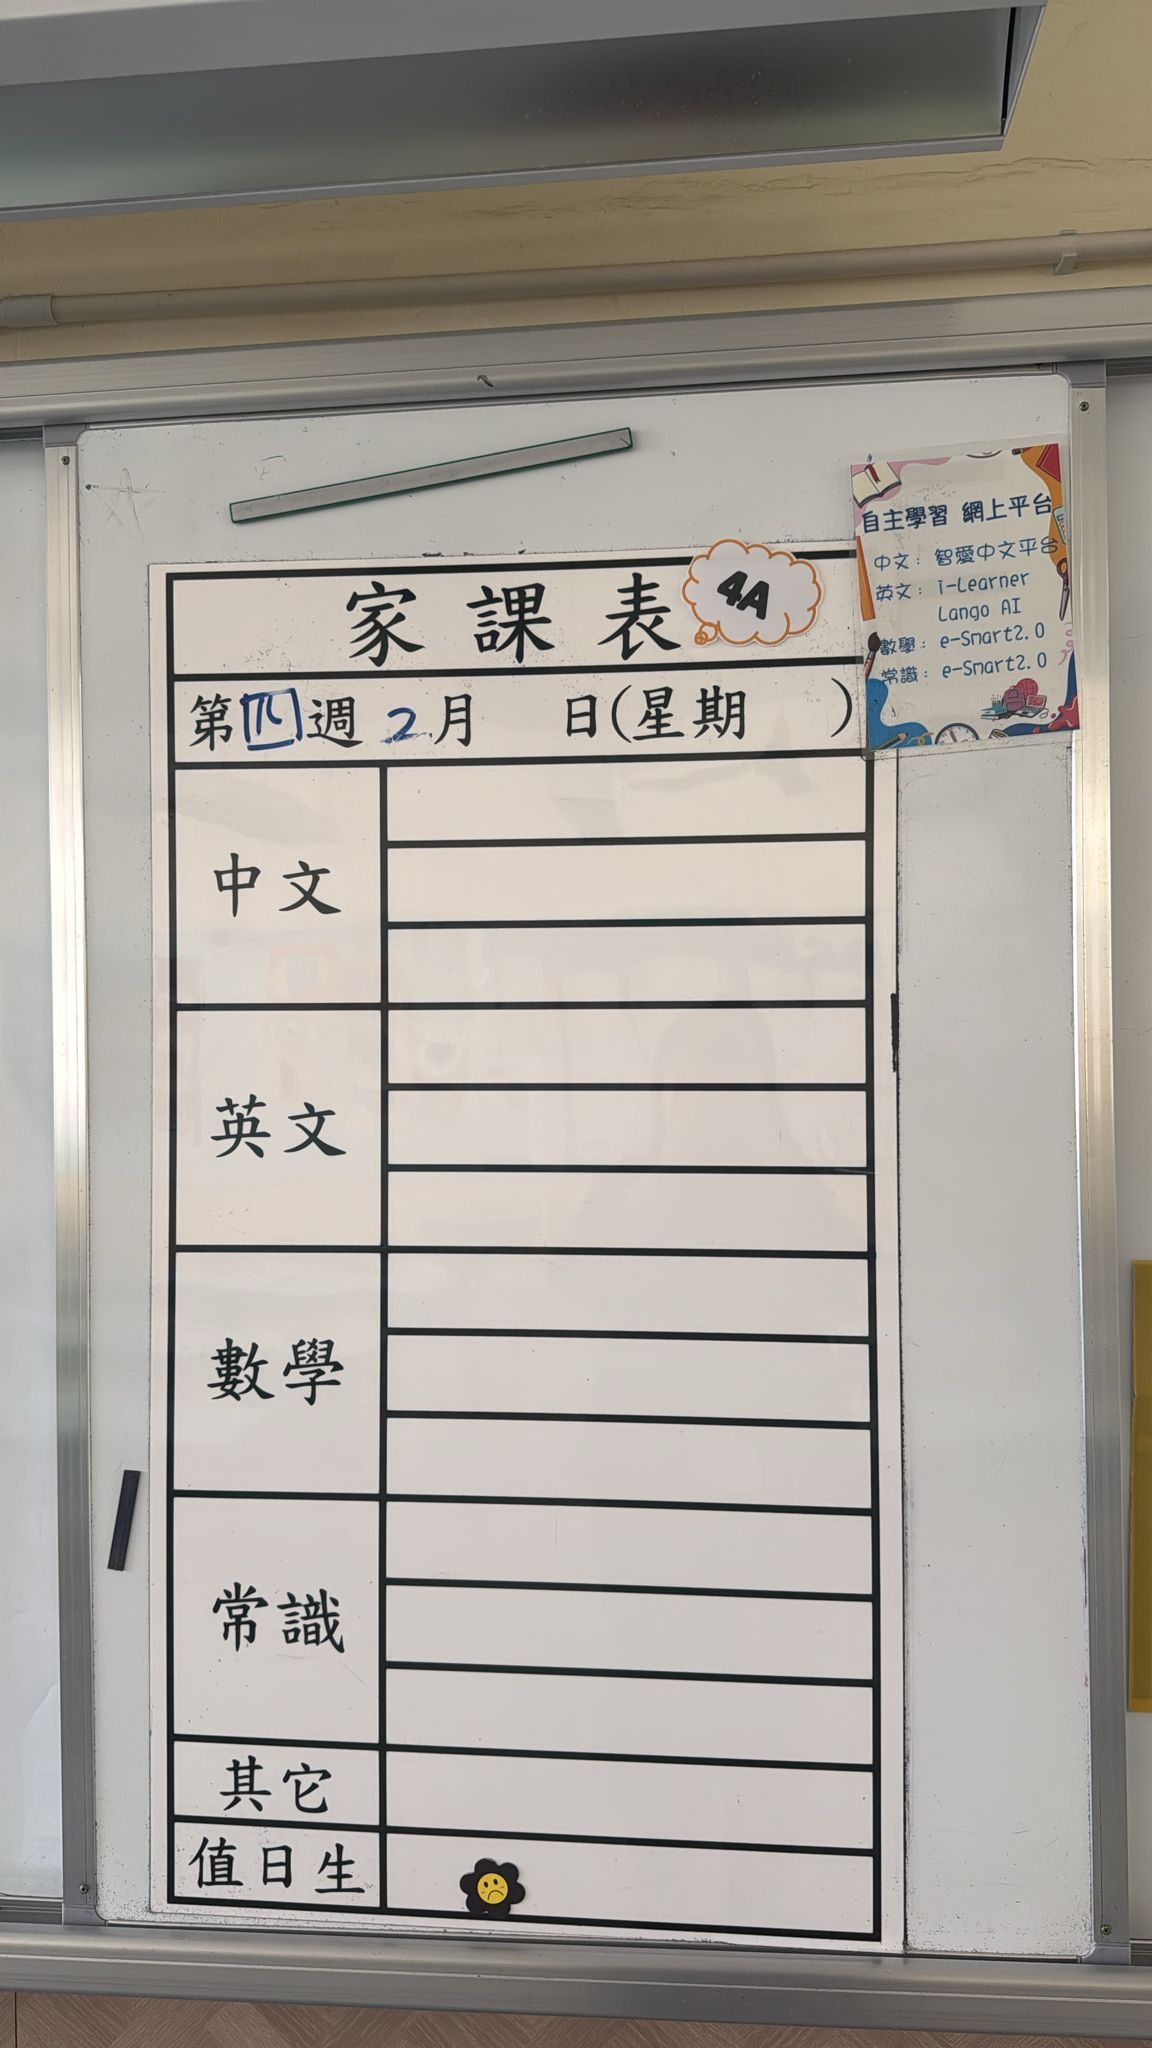 家課表
4A
第四週 2月 日(星期 )
中文
英文
數學
常識
其它
值日生
自主學習 網上平台
中文：智愛中文平台
英文：i-Learner
Lango AI
數學：e-Smart2.0
常識：e-Smart2.0